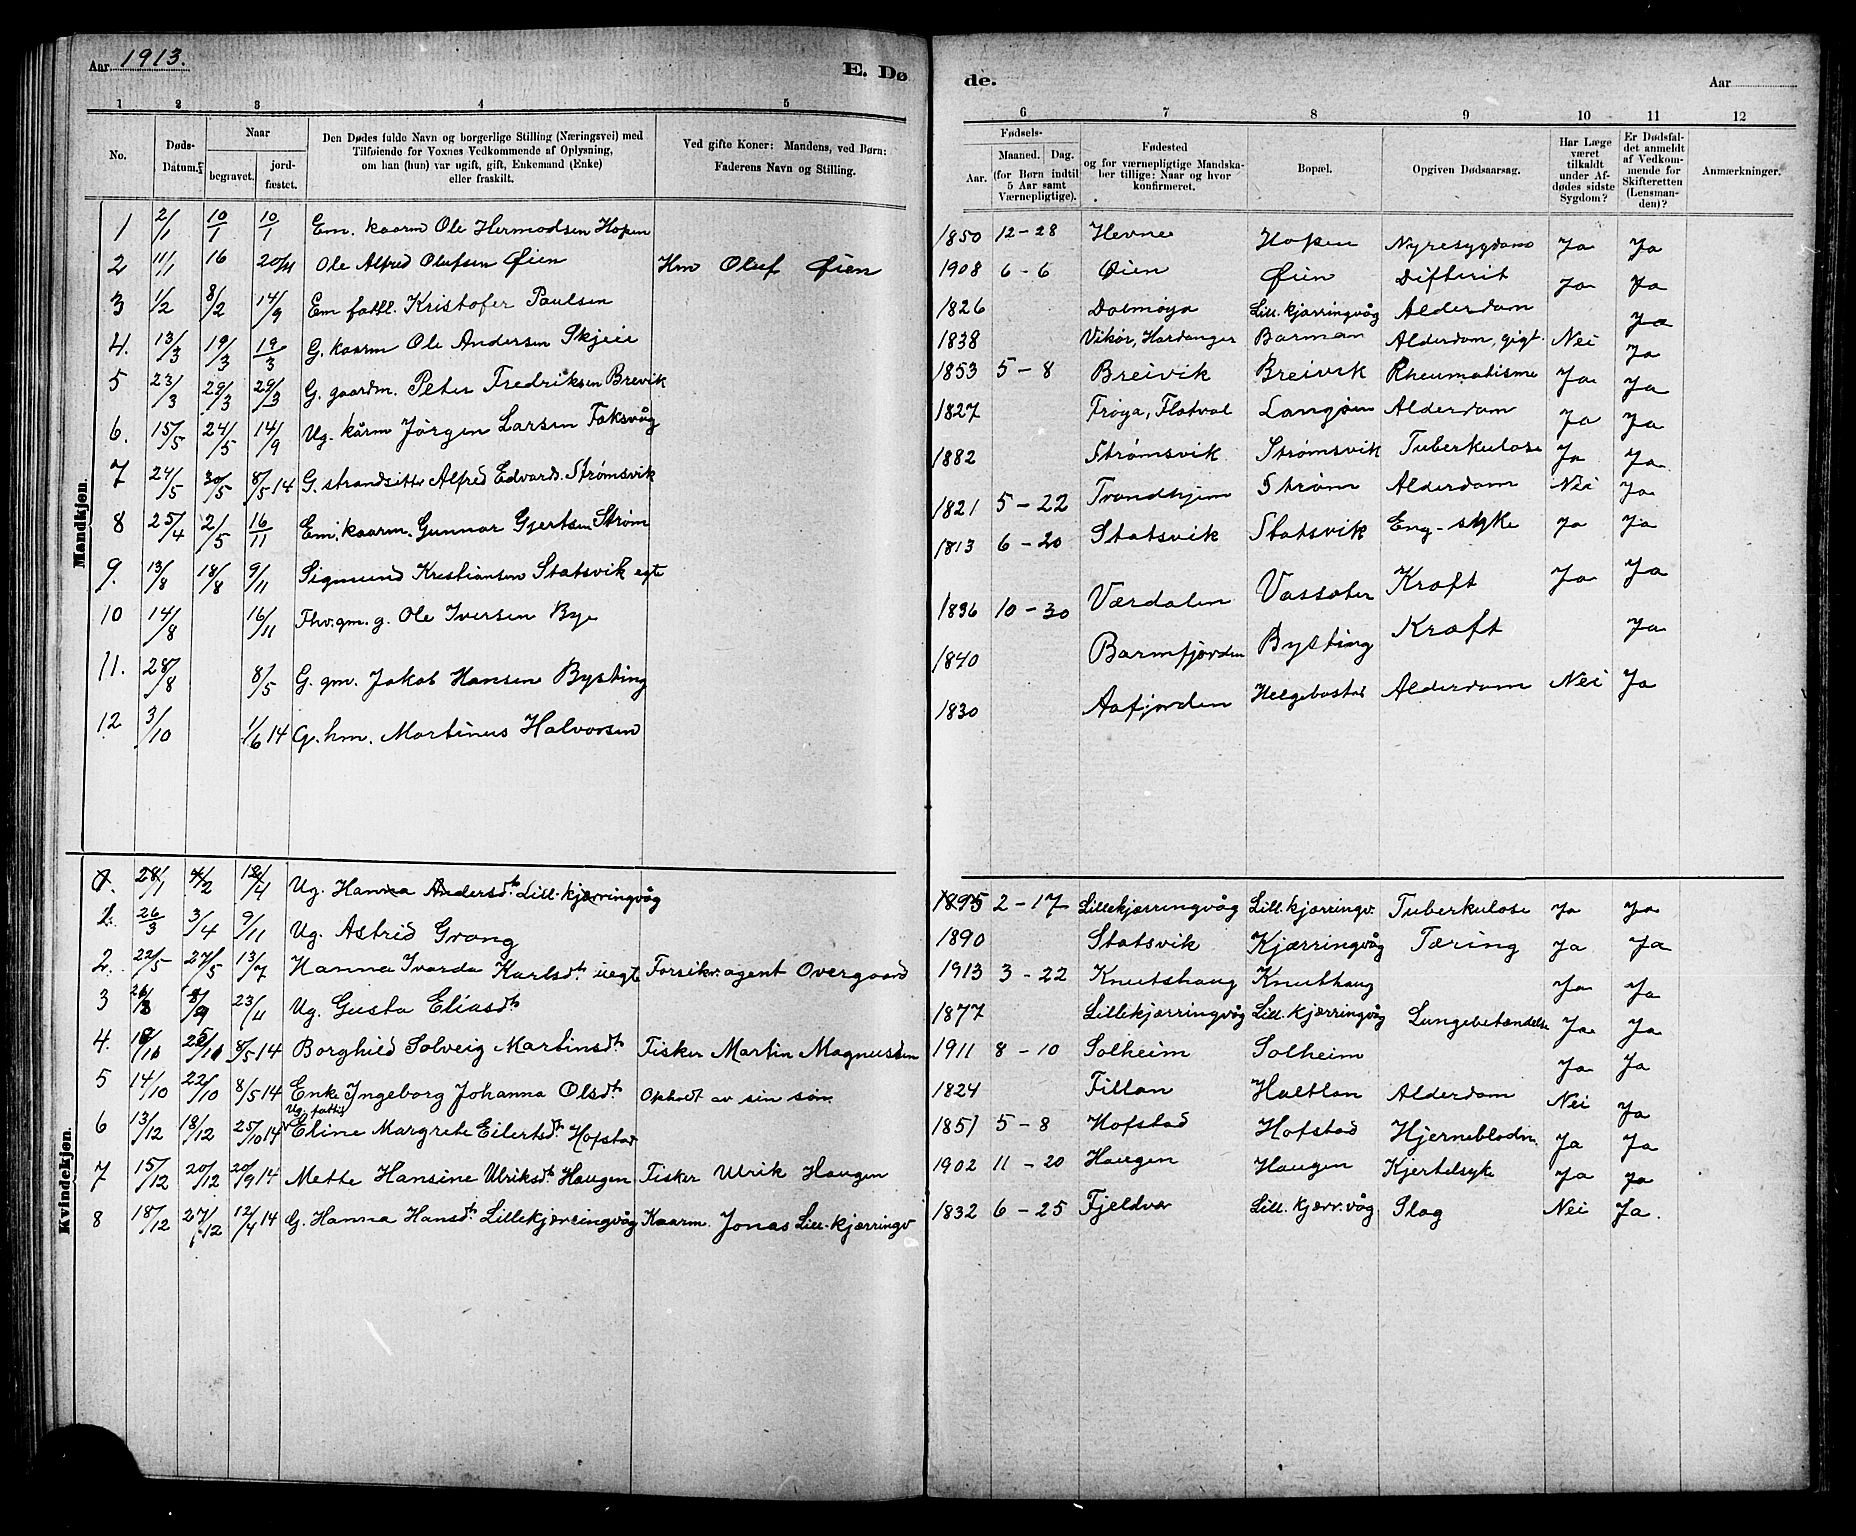 Aar 1913.
E. Dø
de.
Aar
1 2 3 4 5 6 7 8 9 10 11 12
No.
Døds-Datum.
Naar
begravet.
jord-fæstet.
Den Dødes fulde Navn og borgerlige Stilling (Næringsvei) med
Tilføiende for Voxnes Vedkommende af Oplysning,
om han (hun) var ugift, gift, Enkemand (Enke)
eller fraskilt.
Ved gifte Koner: Mandens, ved Børn:
Faderens Navn og Stilling.
Fødsels-
Aar. Maaned. Dag.
(for Børn indtil
5 Aar samt
Værnepligtige).
Fødested
og for værnepligtige Mandska-
ber tillige: Naar og hvor
konfirmeret.
Bopæl.
Opgiven Dødsaarsag.
Har Læge
været
tilkaldt
under Af-
dødes sidste
Sygdom?
Er Dødsfal-
det anmeldt
af Vedkom-
mende for
Skifteretten
(Lensman-
den)?
Anmærkninger.
Mandkjøn.
1 2/1 10/1 10/1 Em. kaarm Ole Hermodsen Hopen 1850 12-28 Hevne Hopen Nyresygdom Ja Ja
2 11/1 16 20/4 Ole Alfred Olufsen Øien Hm Oluf Øien 1908 6-6 Øien Øien Difterit Ja Ja
3 1/2 8/2 14/9 Em fattl. Kristofer Paulsen 1826 Dolmøya Lill. kjærringvåg Alderdom Ja
4. 13/3 19/3 19/3 G. kaarm Ole Andersen Skjeie 1838 Vikør, Hardanger Barman Alderdom, gigt. Nei Ja
5 23/3 29/3 29/3 G. gaardm. Peter Fredriksen Brevik 1853 5-8 Breivik Breivik Rheumatisme Ja Ja
6. 15/5 24/5 14/9 Ug. kårm Jörgen Larsen Faksvåg 1827 Frøya, Flatval Langøen Alderdom Ja Ja
7 24/5 30/5 8/5 14 G. strandsitter Alfred Edvards. Strømsvik 1882 Strømsvik Strømsvik Tuberkulose Ja Ja
8 25/4 2/5 16/11 Em. kaarm. Gunnar Gjertsen Strøm 1821 5-22 Trondhjem Strøm Alderdom Nei Ja
9. 13/8 18/8 9/11 Sigmund Kristiansen Statsvik egte 1813 6-20 Statsvik Statsvik Eng-syke Ja Ja
10 14/8 16/11 Fhv. gm. g. Ole Iversen Bye 1836 10-30 Værdalen Vassøten Kræft Ja Ja
11. 28/8 8/5 G. gm. Jakob Hansen Bysting 1840 Barmfjorden Bysting Kræft Ja
12 3/10 1/6 14 G. hm. Martinus Halvorsen 1830 Aafjorden Helgebostad Alderdom Nei Ja
Kvindekjøn.
1. 28/1 4/2 12/4 Ug. Hanna Andersdtr Lill. kjærringvåg 1895 2-17 Lillekjærringvåg Lill. kjærringv. Tuberkulose Ja Ja
2. 26/3 3/4 9/11 Ug. Astrid Grong 1890 Statsvik Kjærringvåg Tæring Ja Ja
2. 22/5 27/5 13/7 Hanna Ivarda Karlsdtr uegt Forsikr. agent Overgaard 1913 3-22 Knutshaug Knuthaug Ja Ja
3 23/4 Ug. Gusta Eliasdtr 1877 Lillekjærringvåg Lill. kjærringvåg Lungebetændelse Ja Ja
4. 8/5 14 Borghild Solveig Martinsdtr Fisker Martin Magnussen 1911 8-10 Solheim Solheim Ja Ja
5 14/10 22/10 8/5 14 Enke Ingeborg Johanna Olsdtr Opholdt av sin søn 1824 Fillan Haltlan Alderdom Nei Ja
Ug. fattig
6 13/12 18/12 25/10 14 Eline Margrete Eilertsdtr Hofstad 1851 5-8 Hofstad Hofstad Hjerneblødn. Ja Ja
7 15/12 20/12 20/9 14 Mette Hansine Ulriksdtr Haugen Fisker Ulrik Haugen 1902 11-20 Haugen Haugen Kjertelsyke Ja Ja
8 18/12 27/12 12/4 14 G. Hanna Hansdtr Lillekjærringvåg Kaarm. Jonas Lill-kjærringv 1832 6-25 Fjeldvær Lill. kjærr.våg Slag Nei Ja.